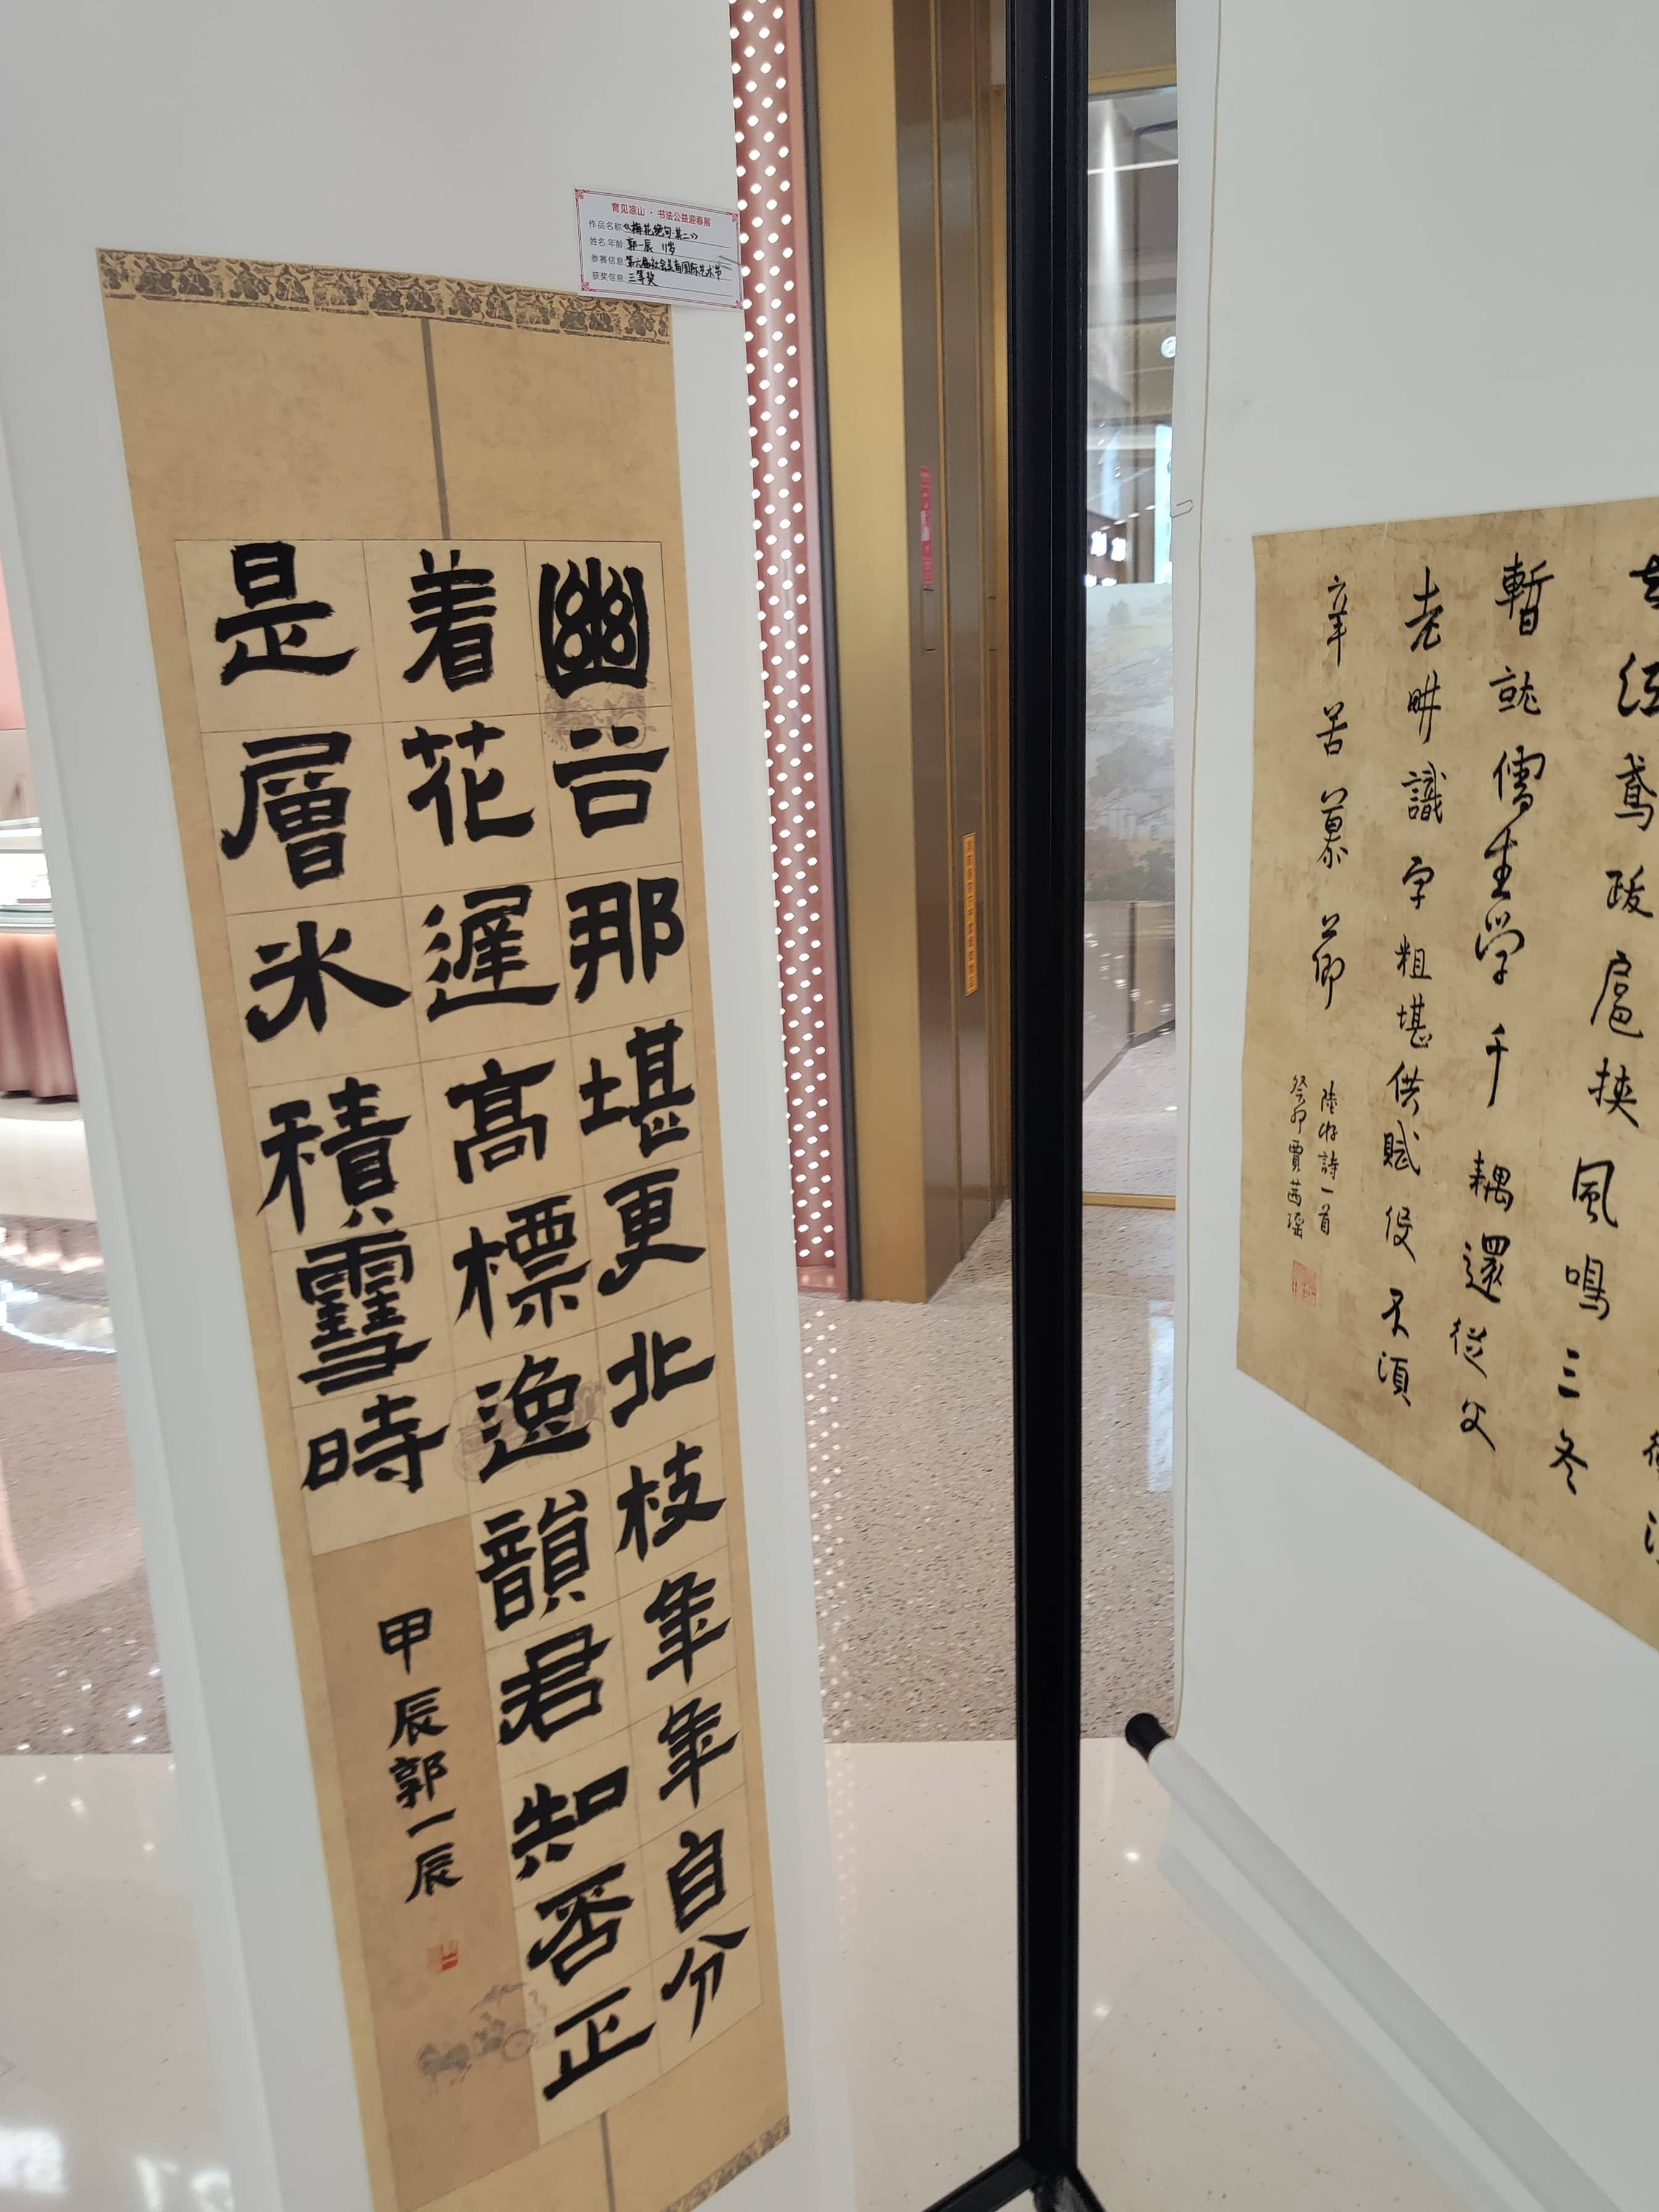 育见凉山·书法公益迎春展
作品名称《梅花绝句·其二》
姓名年龄 郭一辰 11岁
参赛信息 第六届社会美育国际艺术节
获奖信息 三等奖
幽谷那堪更北枝年年自分
着花遲高標逸韻君知否正
是層冰積雪時
甲辰郭一辰
鳶跋扈挾風鳴三冬
暫就儒生學千耦還從父
老畊識字粗堪供賦役不須
辛苦慕公卿
陸游詩一首
癸卯賈茜瑶